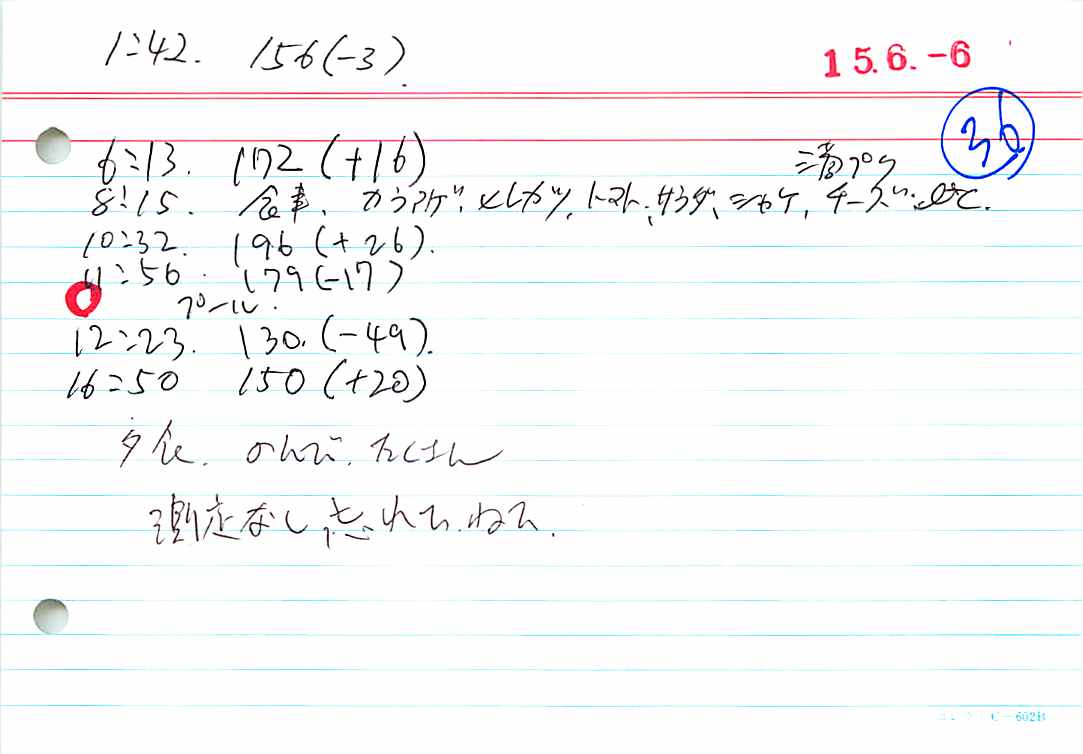 1:42. 156(-3).
15.6.-6
36
6:13. 172(+16)
8:15. 食事、カラアゲ、ヒレカツ、トマト、サラダ、シャケ、チーズ、etc.
10:32. 196(+26).
11:56. 179(-17)
プール.
12:23. 130.(-49).
16:50 150(+20)
夕食. のんで、たくさん
測定なし、忘れて、ねて.
C-602B